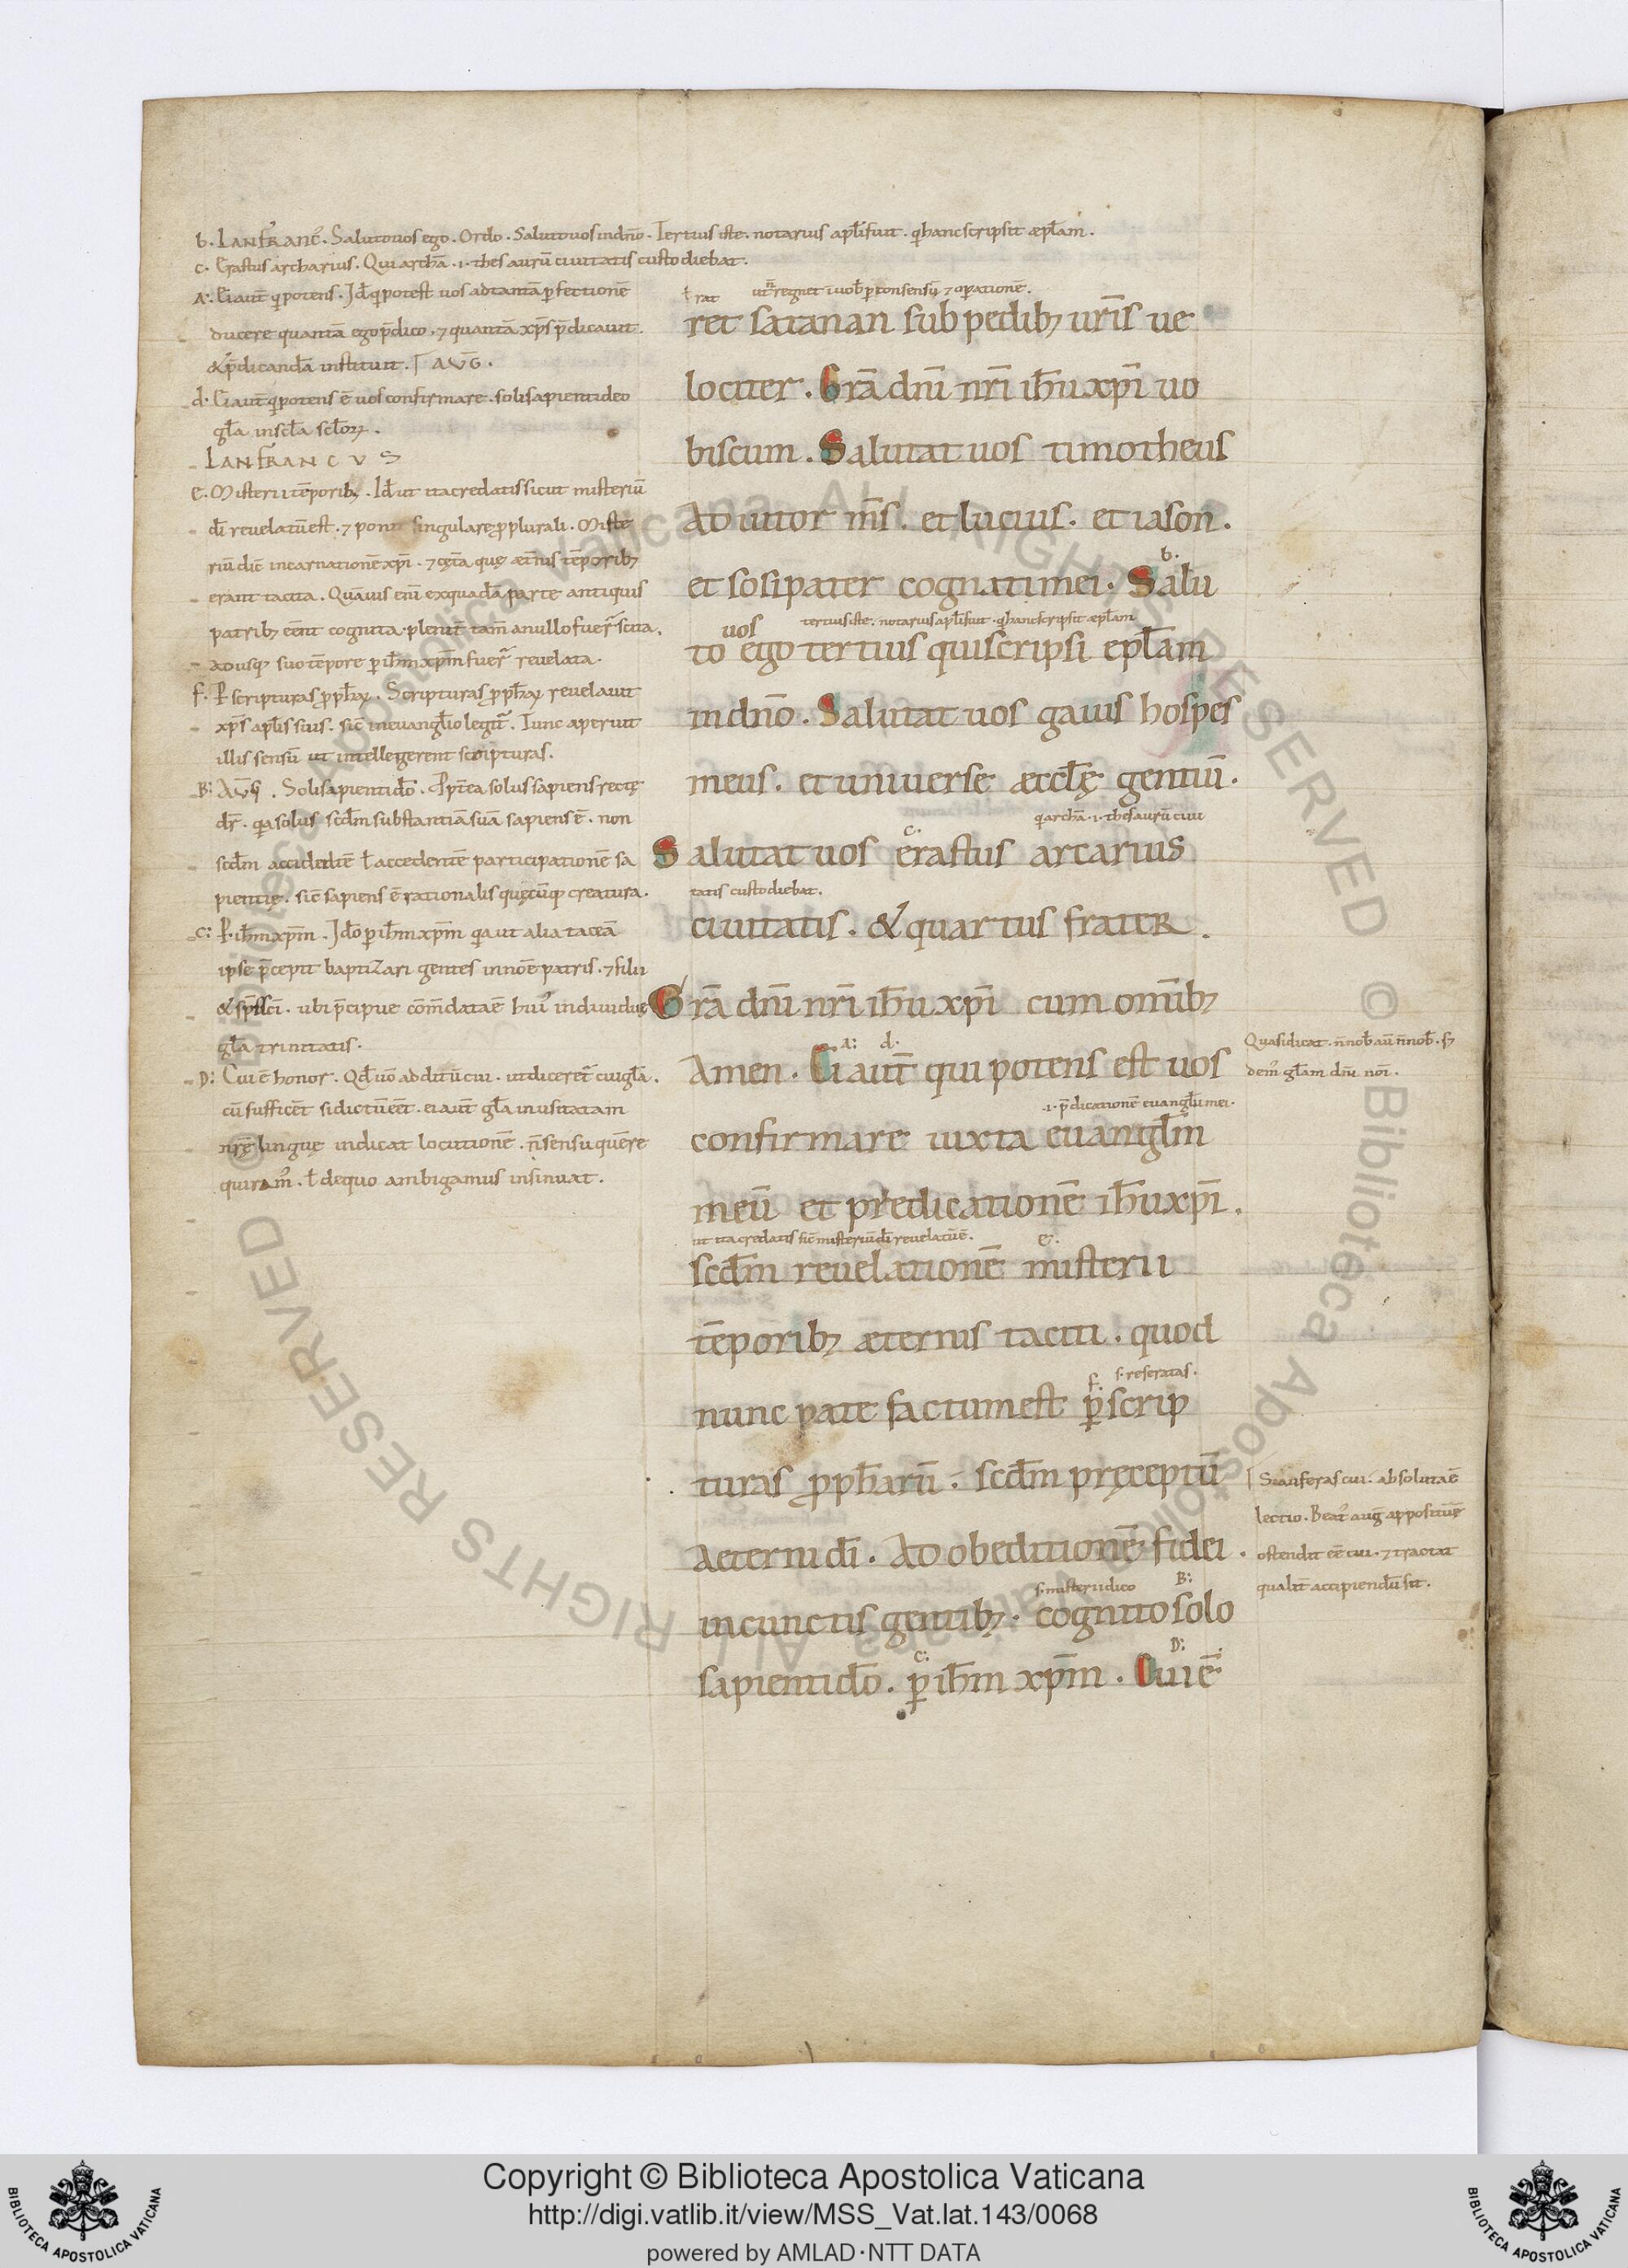 b. LANFRANC᾽. Saluto uos ego. Ordo. Saluto uos in dn̄o. Tertius iste. notarius apl̄i fuit. q̲ hanc scripsit æpl̄am.
c. Erastus archarius. Qui archā .i. thesaurū ciuitatis custodiebat.
A: Ei aut̄ q̲ potens. Id̄ q̲ potest uos ad tantā ꝑfectionē
ducere quantā ego p̄dico. ⁊ quantā xp̄s p̄dicauit.
& p̄dicandā instituit. AUḠ.
d. Ei aut̄ q̲ potens ē uos confirmare. soli sapienti deo
gl̄a in scl̄a scl̄oꝝ.
LANFRANCUS
e. Misterii tēporibꝫ. Id̄ ut ita credatis sicut misteriū
dī reuelatū est. ⁊ ponit singulare ꝓ plurali. Miste
riū dic̄ incarnationē xp̄i. ⁊ cęt̄a quę æt̄nis tēporibꝫ
erant tacita. Quāuis eni᷑ ex quadā parte antiquis
patribꝫ eēnt cognita. plenit̄ tam̄ a nullo fuer̄ scita.
adusqꝫ suo tēpore ꝑ ih̄m xp̄m fuer̄ reuelata.
f. Ꝑ scripturas ꝓph̄aꝝ. Scripturas ꝓph̄aꝝ reuelauit
xp̄s apl̄is suis. sic̄ in euangl̄io legit̄. Tunc aperuit
illis sensū ut intellegerent scripturas.
B: AUḠ. Soli sapienti dō. Ꝓpt̄ea solus sapiens rectę
dr̄. q̲a solus scd̄m substantiā suā sapiens ē. non
scd̄m accidentē ł accedentē participationē sa
pientię. sic̄ sapiens ē rationalis quęcūqꝫ creatura.
c: Ꝑ ih̄m xp̄m. Id̄o ꝑ ih̄m xp̄m q̲a ut alia taceā
ipse p̄cepit baptizari gentes in noē patris. ⁊ filii
& sp̄s sc̄i. ubi p̄cipue cōm̄data ē hui᾽ indiuiduę
gl̄a trinitatis.
D: Cui ē honor. Qd̄ uō additū cui. ut diceret̄ cui gl̄a.
cū sufficēt si dictū eēt. ei aut̄ gl̄a inusitatam
nr̄ę linguę indicat locutionē. n̄ sensū quēre
quiram᾽. ł de quo ambigamus insinuat.
ł rat ut n̄ regnet i uob̄ ꝑ consensū ⁊ oꝑationē.
ret satanan sub pedibꝫ ur̄is ue
lociter. Gr̄a dn̄i nr̄i ih̄u xp̄i uo
biscum. Salutat uos timotheus
Adiutor m̄s. et lucius. et iason.
b.
et sosipater cognati mei. Salu
uos tertius iste. notarius apl̄i fuit. q̲ hanc scripsit æpl̄am
to ego tertius qui scripsi epl̄am
in dn̄o. Salutat uos gaius hospes
meus. et uniuerse æccl̄ę gentiū.
c. q̲ archā .i. thesaurū ciui
Salutat uos erastus arcarius
tatis custodiebat.
ciuitatis. & quartus frateR.
Gr̄a dn̄i nr̄i ih̄u xp̄i cum omībꝫ
A: d.
Amen. Ei aut̄ qui potens est uos
.i. p̄dicationē euangl̄ii mei.
confirmare iuxta euangl̄m
meū et predicationē ih̄u xp̄i.
ut ita credatis sic̄ misteriū dī reuelatū ē. e.
scd̄m reuelationē misterii
tēporibꝫ æternis taciti. quod
f. s. reseratas.
nunc patefactum est ꝑ scrip
turas ꝓph̄arū. scd̄m pręceptū
Aeterni dī. Ad obeditionē fidei.
s. misterii dico B:
in cunctis gentibꝫ. cognito solo
C: D:
sapienti dō. ꝑ ih̄m xp̄m. Cui ē
Quasi dicat. n̄ nob̄ n̄ nob̄. sꝫ
dem᾽ gl̄am dn̄i noī.
Si auferas cui. absoluta ē
lectio. Beat᾽ auḡ appositū
ostendit eē cui. ⁊ tractat
qualit̄ accipiendū sit.
© Biblioteca Apostolica Vaticana ALL RIGHTS RESERVED © Biblioteca Apostolica Vaticana ALL RIGHTS RESERVED
Copyright © Biblioteca Apostolica Vaticana
http://digi.vatlib.it/view/MSS_Vat.lat.143/0068
powered by AMLAD·NTT DATA
BIBLIOTECA APOSTOLICA VATICANA
BIBLIOTECA APOSTOLICA VATICANA